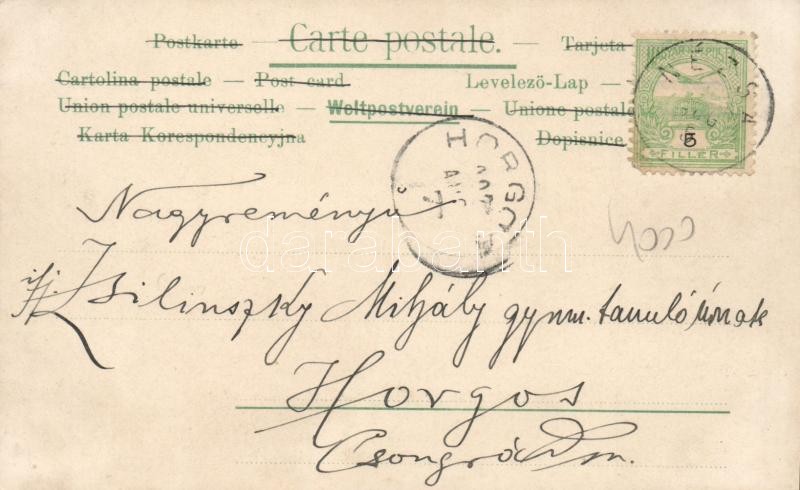 Postkarte — Carte postale. — Tarjeta
Cartolina postale — Post card Levelezö-Lap —
Union postale universelle — Weltpostverein — Unione postale
Karta Korespondencyjna Dopisnice
MAGYAR KIR. POSTA
5
FILLER
HORGOS
904
AUG
7
Nagyreményü
ifj. Zsilinszky Mihály gymn. tanuló úrnak
Horgos
Csongrád m.
darabanth